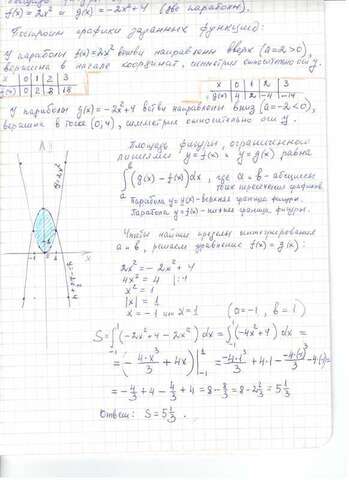 f(x) = 2x² и g(x) = -2x² + 4 (две параболы).
Построим графики заданных функций:
У параболы f(x) = 2x² ветви направлены вверх (a = 2 > 0),
вершина в начале координат, симметрия относительно оси y.
x 0 1 2 3
f(x) 0 2 8 18
x 0 1 2 3
g(x) 4 2 -4 -14
У параболы g(x) = -2x² + 4 ветви направлены вниз (a = -2 < 0),
вершина в точке (0; 4), симметрия относительно оси y.
Площадь фигуры, ограниченной
линиями y = f(x) и y = g(x) равна
∫ₐᵇ (g(x) - f(x)) dx, где a и b - абсциссы
точек пересечения графиков.
Парабола y = g(x) - верхняя граница фигуры.
Парабола y = f(x) - нижняя граница фигуры.
Чтобы найти пределы интегрирования
a и b, решаем уравнение f(x) = g(x):
2x² = -2x² + 4
4x² = 4 | :4
x² = 1
|x| = 1
x = -1 или x = 1 (a = -1, b = 1)
S = ∫₋₁¹ (-2x² + 4 - 2x²) dx = ∫₋₁¹ (-4x² + 4) dx =
= (-4·x³/3 + 4x) |₋₁¹ = -4·1³/3 + 4·1 - -4(-1)³/3 - 4(-1) =
= -4/3 + 4 - 4/3 + 4 = 8 - 8/3 = 8 - 2 2/3 = 5 1/3
Ответ: S = 5 1/3.
y = 2x²
y = -2x² + 4
x
-1
1